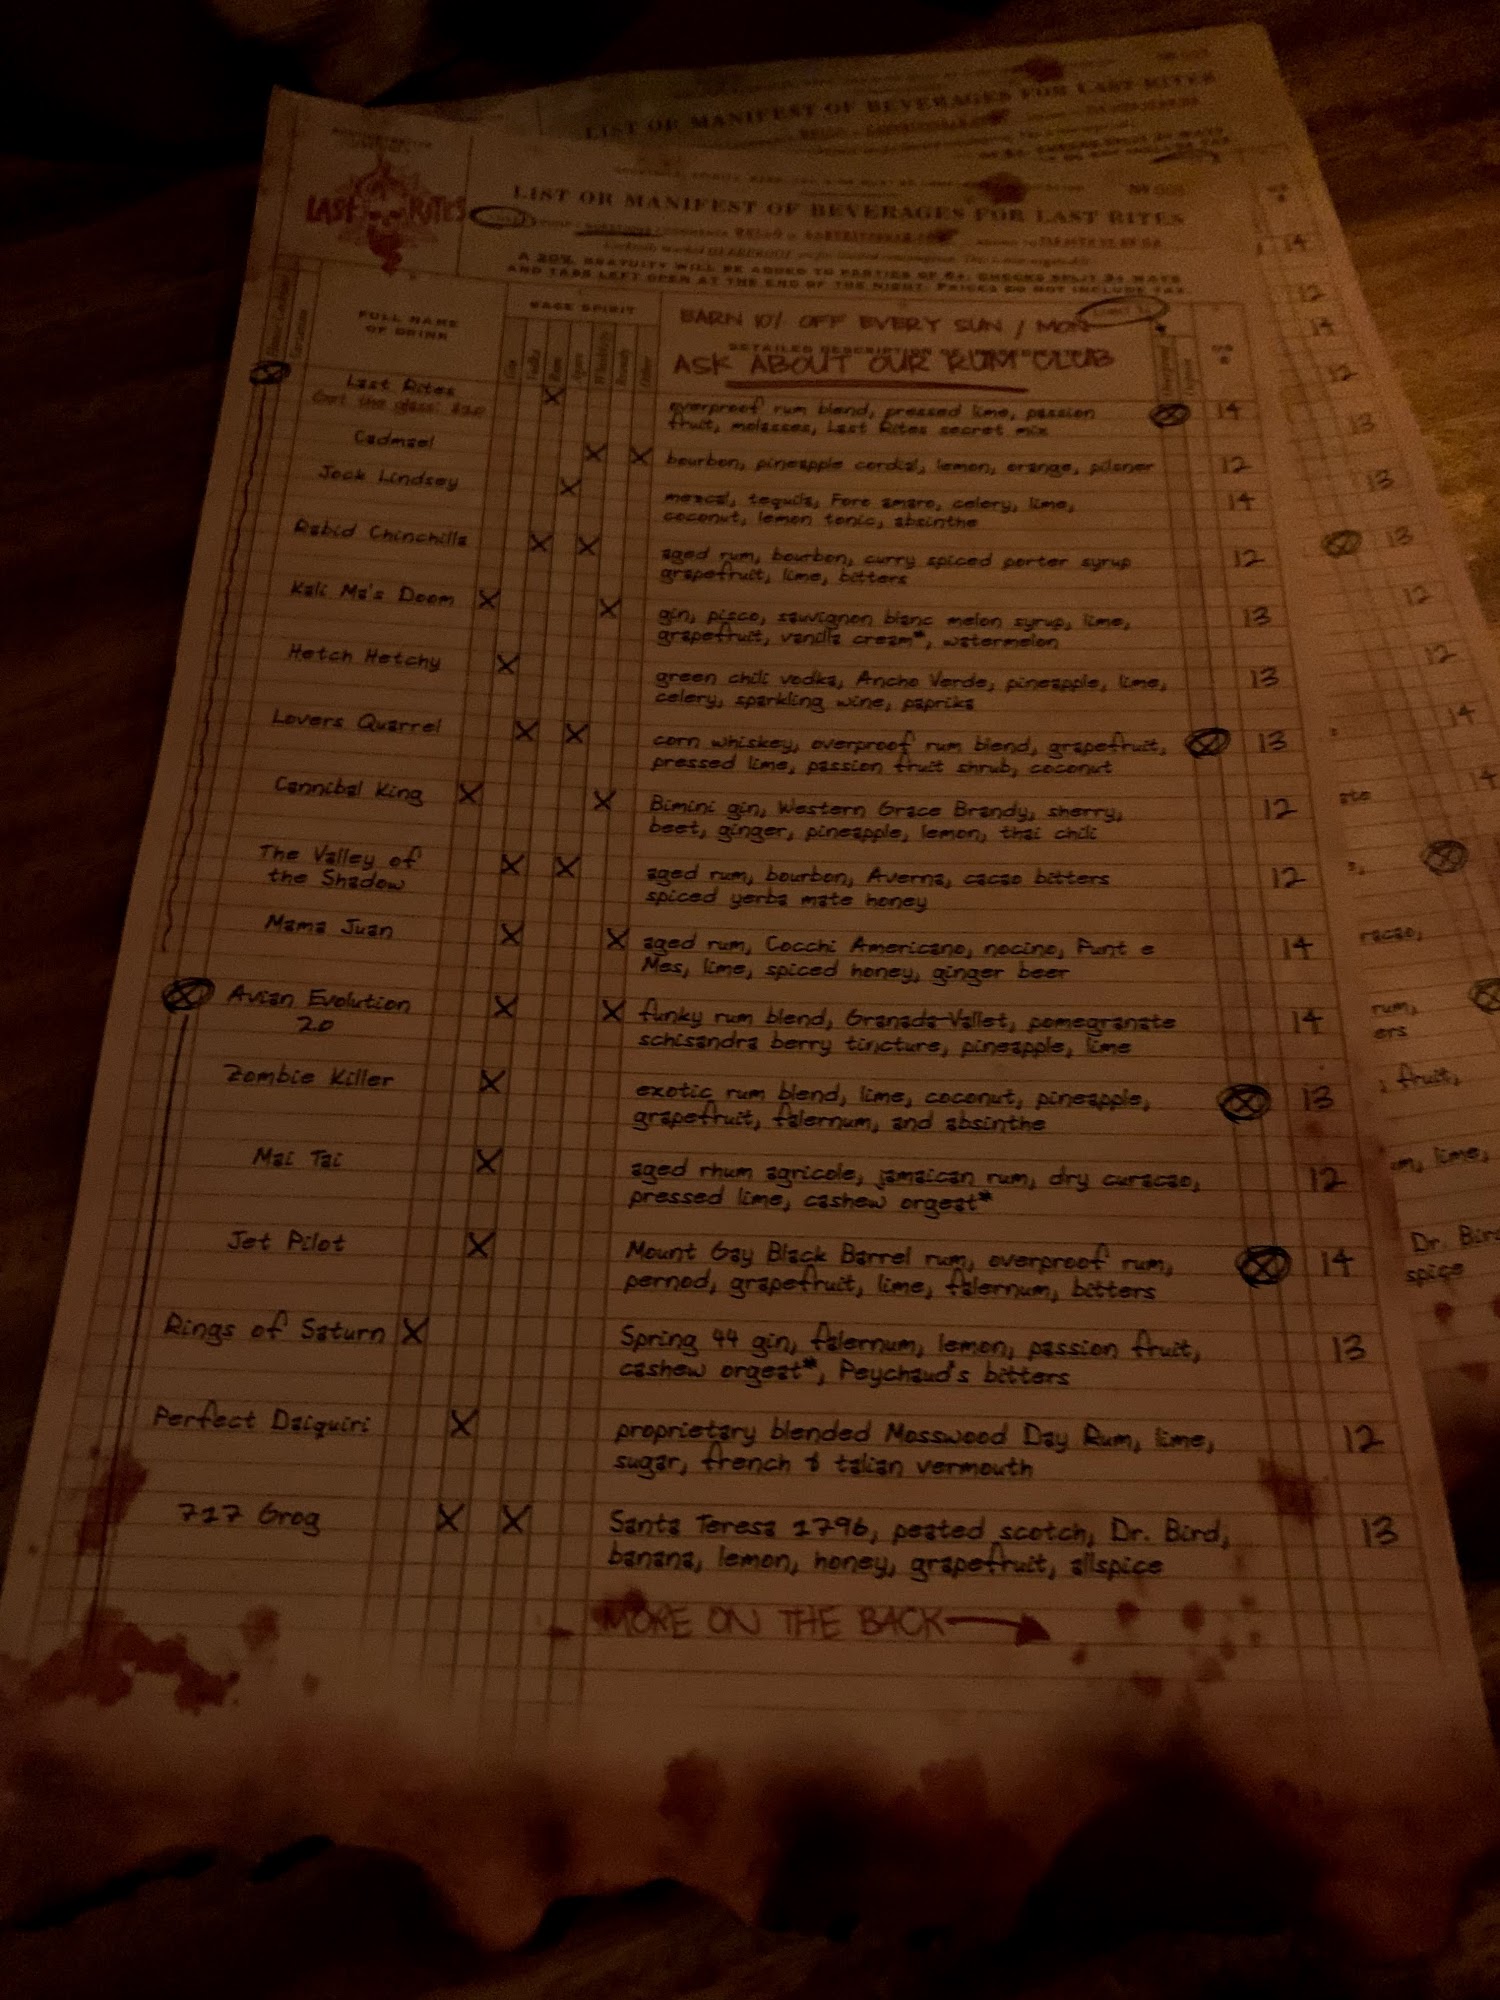 LIST OR MANIFEST OF BEVERAGES FOR LAST RITES
LAST RITES
LIST OR MANIFEST OF BEVERAGES FOR LAST RITES
A 20% GRATUITY WILL BE ADDED TO PARTIES OF 6+. CHECKS SPLIT 3+ WAYS
AND TABS LEFT OPEN AT THE END OF THE NIGHT. PRICES DO NOT INCLUDE TAX.
FULL NAME
OF DRINK
BASE SPIRIT
Gin Vodka Rum Agave Whiskey Brandy Other
BARN 10% OFF EVERY SUN / MON
DETAILED DESCRIPTION
ASK ABOUT OUR RUM CLUB
Last Rites X overproof rum blend, pressed lime, passion X 14
Get the glass: $20 fruit, molasses, Last Rites secret mix
Cadmael X X bourbon, pineapple cordial, lemon, orange, pilsner 12
Jock Lindsey X mezcal, tequila, Foro amaro, celery, lime, 14
coconut, lemon tonic, absinthe
Rabid Chinchilla X X aged rum, bourbon, curry spiced porter syrup 12
grapefruit, lime, bitters
Kali Ma's Doom X X gin, pisco, sauvignon blanc melon syrup, lime, 13
grapefruit, vanilla cream*, watermelon
Hetch Hetchy X green chili vodka, Ancho Verde, pineapple, lime, 13
celery, sparkling wine, paprika
Lovers Quarrel X X corn whiskey, overproof rum blend, grapefruit, X 13
pressed lime, passion fruit shrub, coconut
Cannibal King X X Bimini gin, Western Grace Brandy, sherry, 12
beet, ginger, pineapple, lemon, thai chili
The Valley of X X aged rum, bourbon, Averna, cacao bitters 12
the Shadow spiced yerba mate honey
Mama Juan X X aged rum, Cocchi Americano, nocino, Punt e 14
Mes, lime, spiced honey, ginger beer
X Avian Evolution X X funky rum blend, Granada-Vallet, pomegranate 14
2.0 schisandra berry tincture, pineapple, lime
Zombie Killer X exotic rum blend, lime, coconut, pineapple, X 13
grapefruit, falernum, and absinthe
Mai Tai X aged rhum agricole, jamaican rum, dry curacao, 12
pressed lime, cashew orgeat*
Jet Pilot X Mount Gay Black Barrel rum, overproof rum, X 14
pernod, grapefruit, lime, falernum, bitters
Rings of Saturn X Spring 44 gin, falernum, lemon, passion fruit, 13
cashew orgeat*, Peychaud's bitters
Perfect Daiquiri X proprietary blended Mosswood Day Rum, lime, 12
sugar, french & talian vermouth
717 Grog X X Santa Teresa 1796, peated scotch, Dr. Bird, 13
banana, lemon, honey, grapefruit, allspice
MORE ON THE BACK
14
12
14
12
13
13
X 13
12
12
14
14
racao,
rum,
ers
fruit,
lime,
Dr. Bird
spice